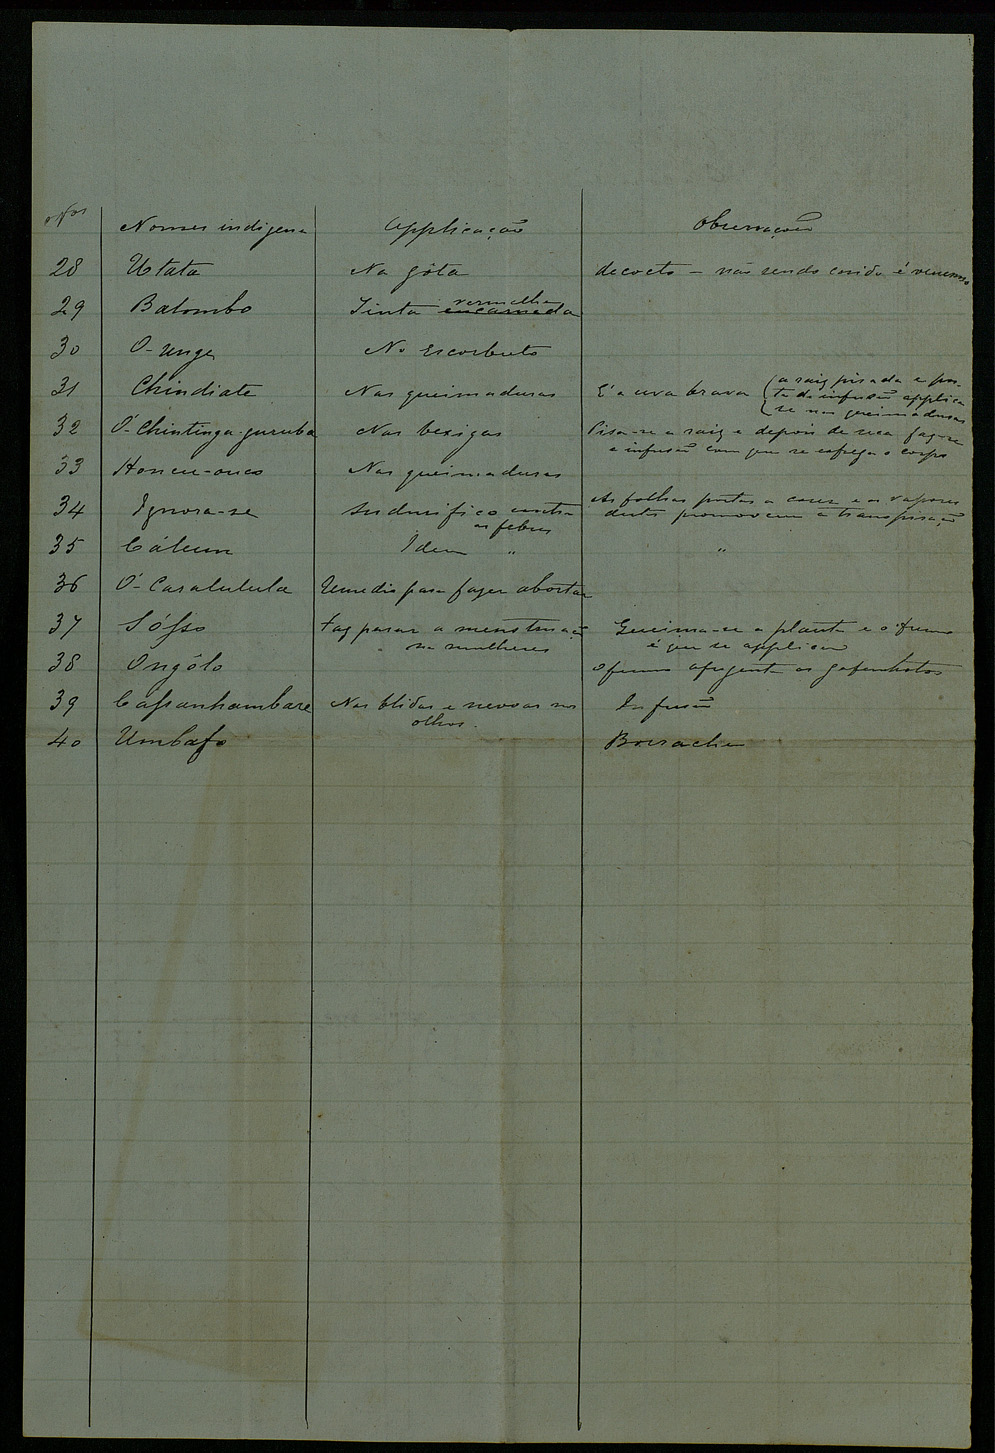 Nos Nomes indigena Applicação Observações
28 Utata Na gôta decocto - não sendo cosido é venenoso
29 Batombo Tinta encarnada vermelha
30 O-unge No Escorbuto
31 Chindiate Nas queimaduras É a uva brava (a raiz pisada e pos-
ta de infusão applica
se nas queimaduras
32 Ó-Chintinga-guruba Nas bexigas Pisa-se a raiz e depois de seca faz-se
a infusão com que se esfrega o corpo
33 Honeu-oneo Nas queimaduras
34 Ignora-se Sudorifico contra as febres As folhas postas a coser e os vapores
destas promovem a transpiração
35 Cáleum Idem " "
36 Ó-Casalulula Remedio para fazer abortar
37 Sósso Faz parar a menstruação Queima-se a planta e o fumo
na mulheres é que se applica
38 Ongôlo O fumo afugenta os gafanhotos
39 Cassanhambare Nas blidas e nevoas nos Infusão
olhos.
40 Umbafo Borracha